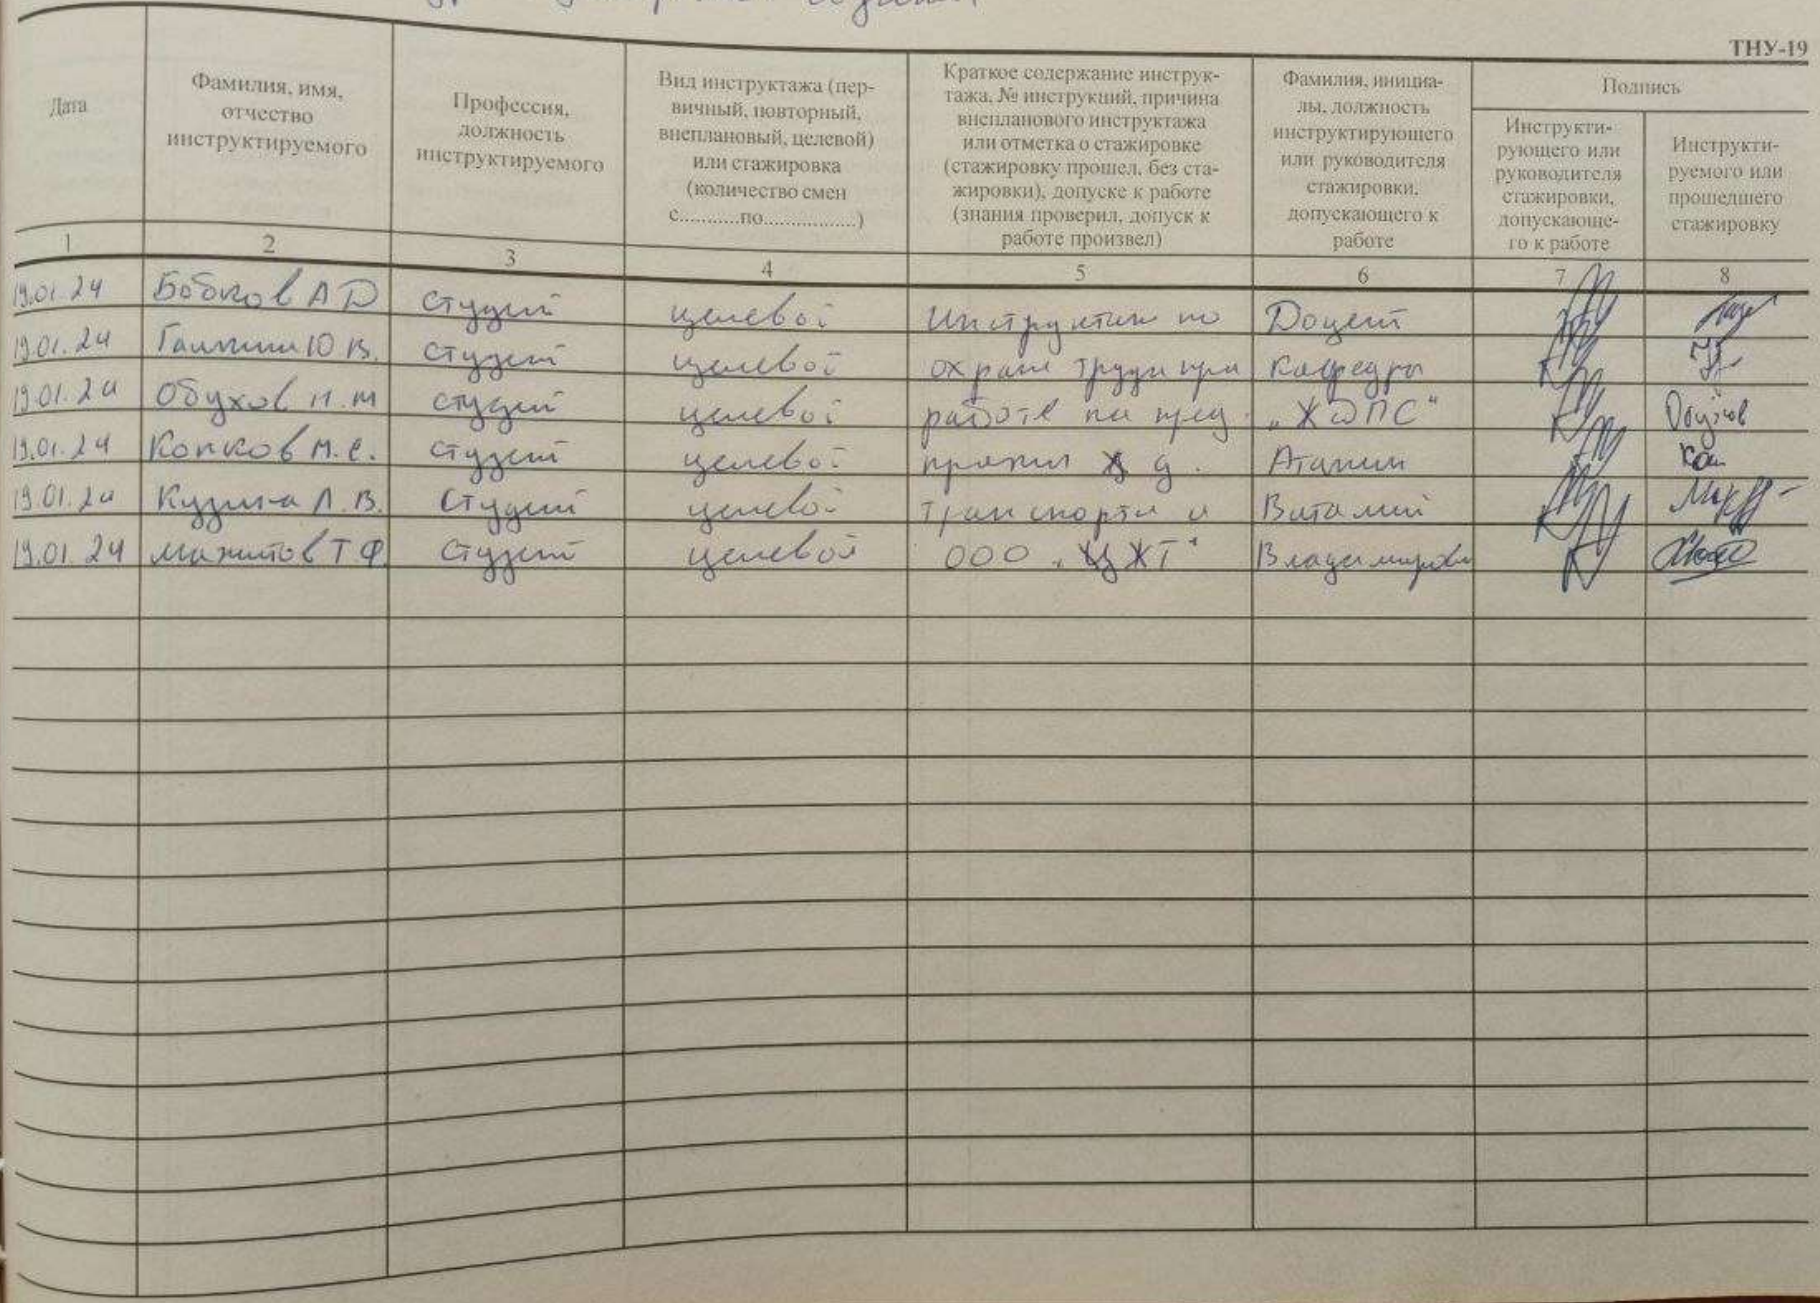 ТНУ-19
Дата
Фамилия, имя,
отчество
инструктируемого
Профессия,
должность
инструктируемого
Вид инструктажа (пер-
вичный, повторный,
внеплановый, целевой)
или стажировка
(количество смен
с...........по.................)
Краткое содержание инструк-
тажа, № инструкций, причина
внепланового инструктажа
или отметка о стажировке
(стажировку прошел, без ста-
жировки), допуске к работе
(знания проверил, допуск к
работе произвел)
Фамилия, инициа-
лы, должность
инструктирующего
или руководителя
стажировки,
допускающего к
работе
Подпись
Инструкти-
рующего или
руководителя
стажировки,
допускающе-
го к работе
Инструкти-
руемого или
прошедшего
стажировку
1 2 3 4 5 6 7 8
19.01.24 Бобков А Д студент целевой Инструктаж по Доцент
19.01.24 Ю В. студент целевой охране труда при Кафедры
19.01.24 Обухов Н. М студент целевой работе на пред. „ЖДПС" Обухов
19.01.24 Копков М. С. студент целевой ж д. Атапин
19.01.24 Кузина Л. В. студент целевой транспорта и Виталий
19.01.24 Мажитов Т Ф. студент целевой ООО „ЦЖТ" Владимирович